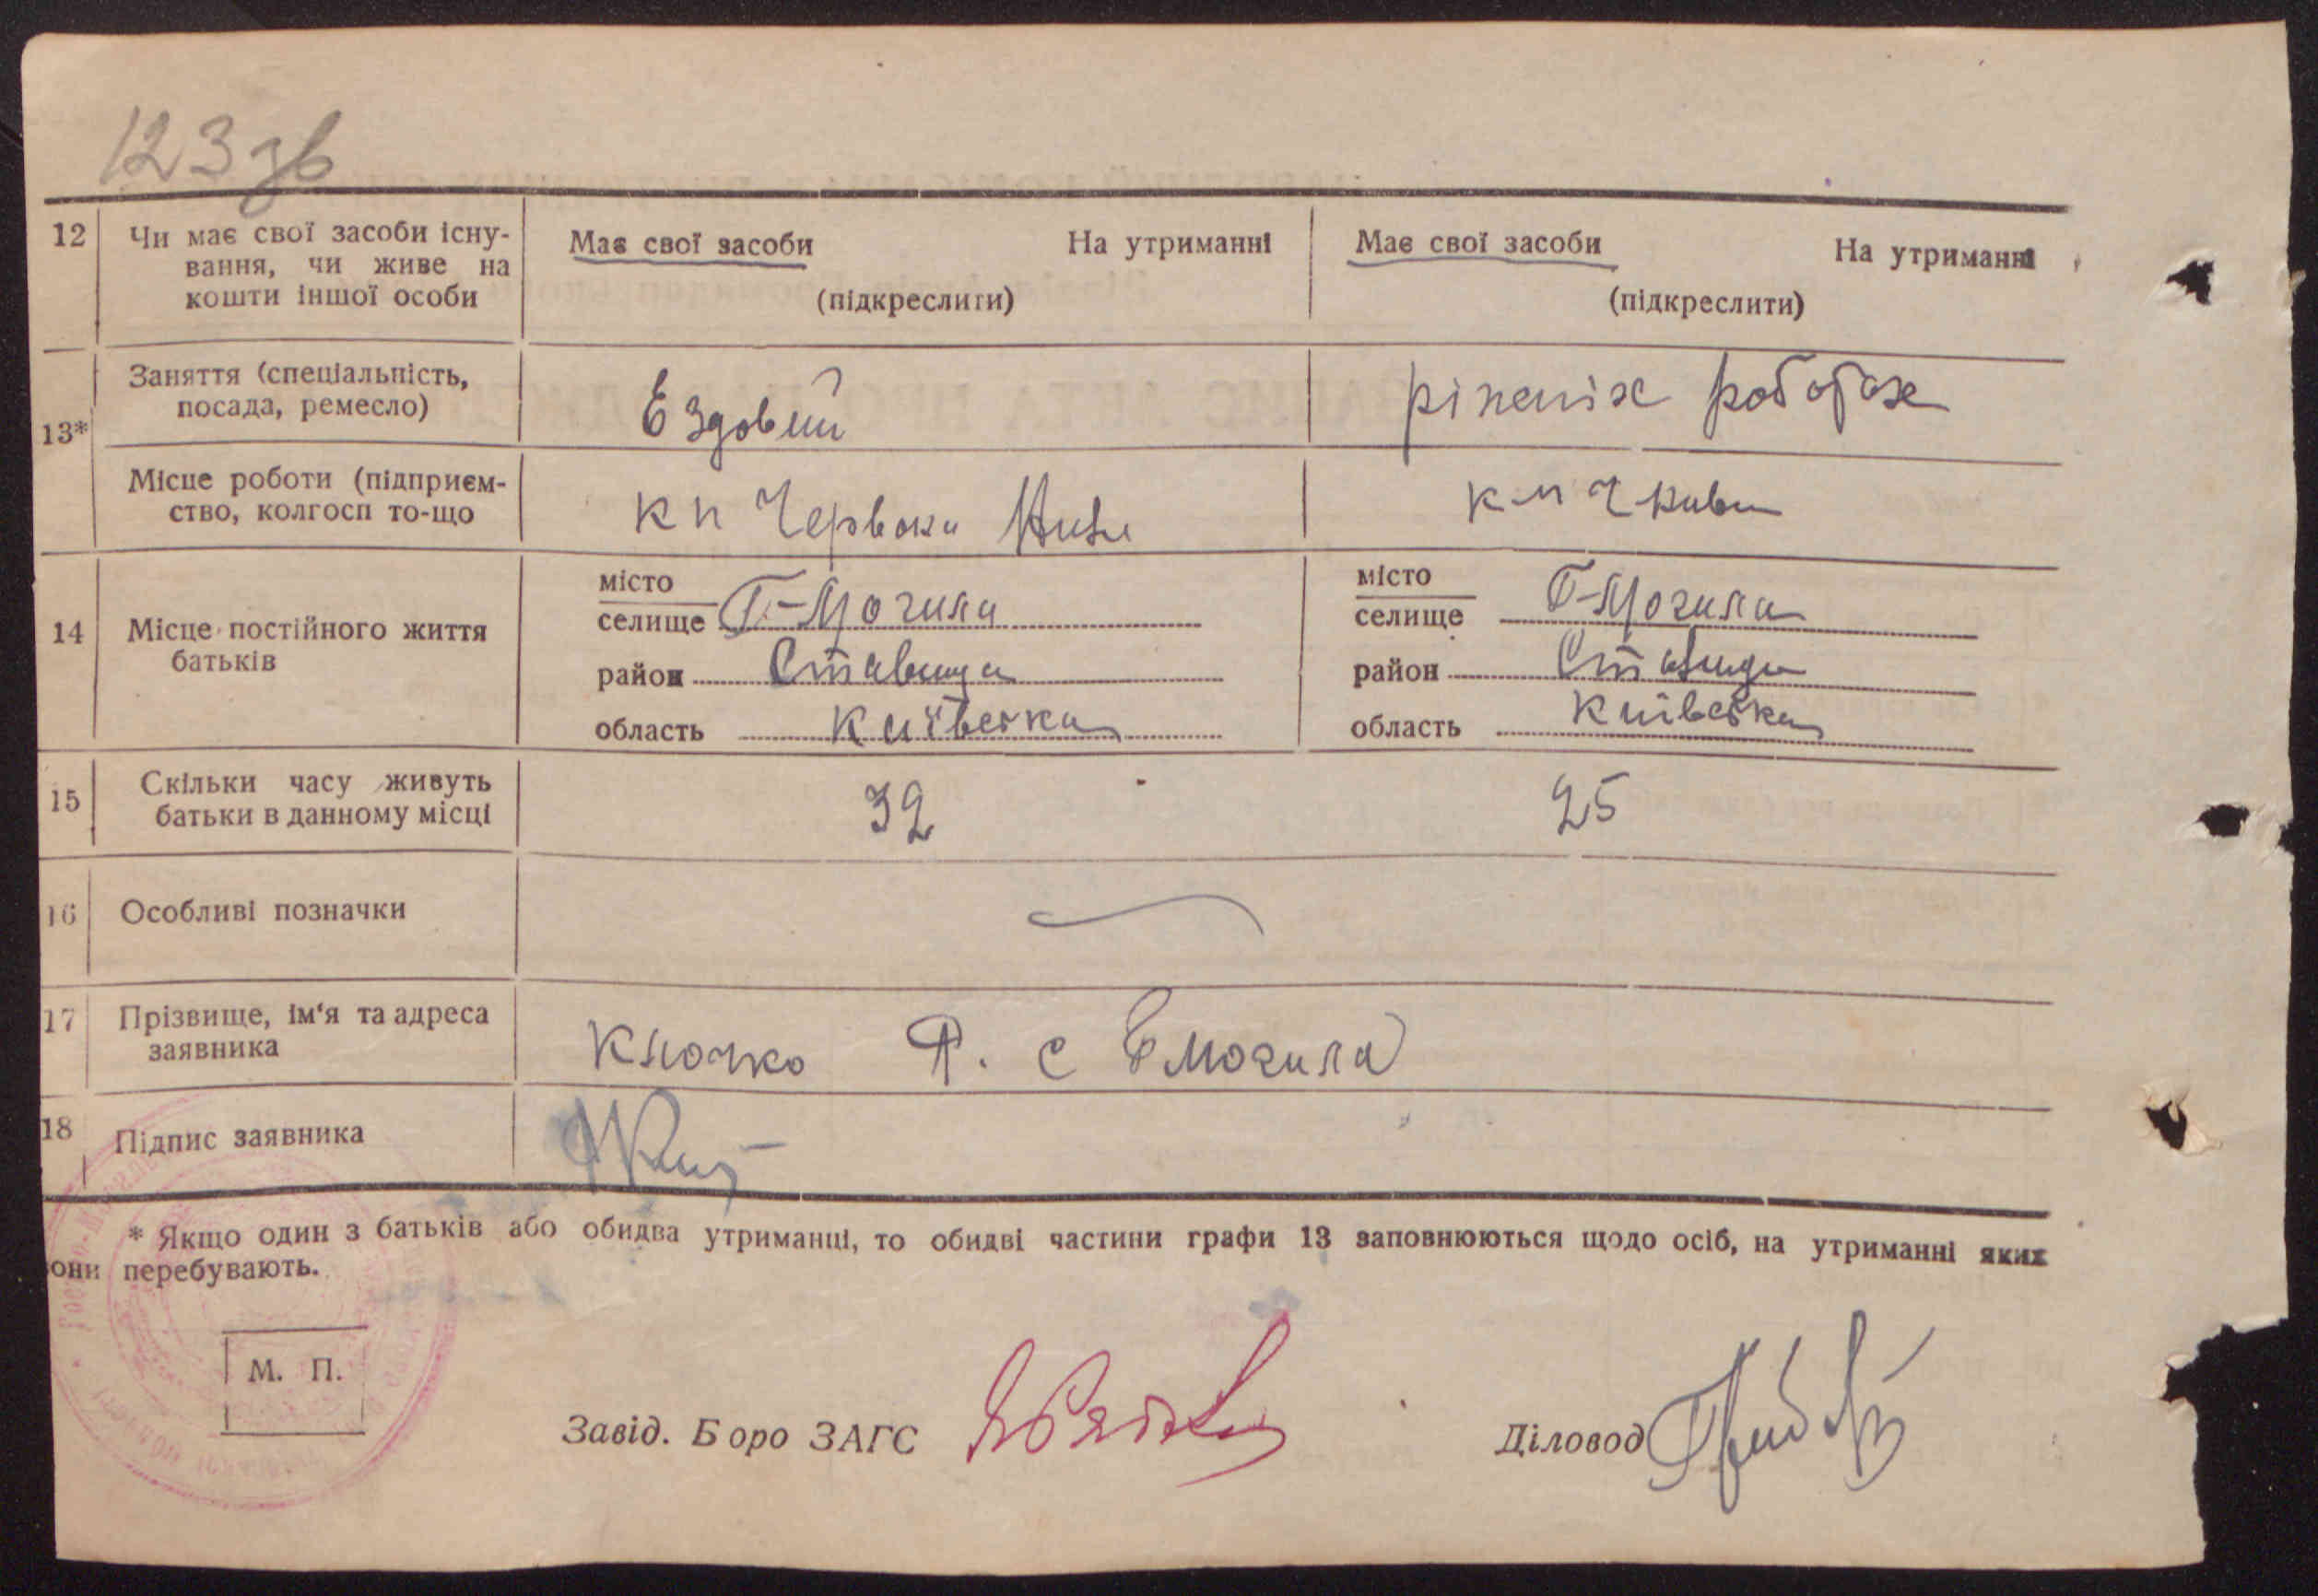 123 зв
12 Чи має свої засоби існу- Має свої засоби На утриманні Має свої засоби На утриманні
вання, чи живе на
кошти іншої особи (підкреслити) (підкреслити)
13* Заняття (спеціальність, Ездовий
посада, ремесло)
Місце роботи (підприєм- кп Червона Нива кп Ч Нива
ство, колгосп то-що
14 Місце постійного життя
батьків
місто місто
селище Г-Могила селище Г-Могила
район Ставища район Ставища
область Київська область Київська
15 Скільки часу живуть 32 25
батьки в данному місці
16 Особливі позначки
17 Прізвище, ім'я та адреса Клочко Я. с Гмогила
заявника
18 Підпис заявника
* Якщо один з батьків або обидва утриманці, то обидві частини графи 13 заповнюються щодо осіб, на утриманні яких
они перебувають.
М. П.
Завід. Боро ЗАГС Діловод